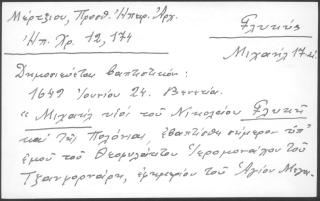 Μέρτζιου, Προσθ. Ηπειρ. Αρχ. Γλυκής
Ηπ. Χρ. 12, 174 Μιχαήλ 17ου
Δημοσιεύεται βαπτιστικόν:
1649 Ιουνίου 24. Βενετία.
"Μιχαήλ υιός του Νικολάου Γλυκή
και της Πολόνιας, εβαπτίσθη σήμερον υπ'
εμού του Θεοφυλάκτου Ιερομονάχου του
Τζανφουρνάρη, εφημερίου του Αγίου